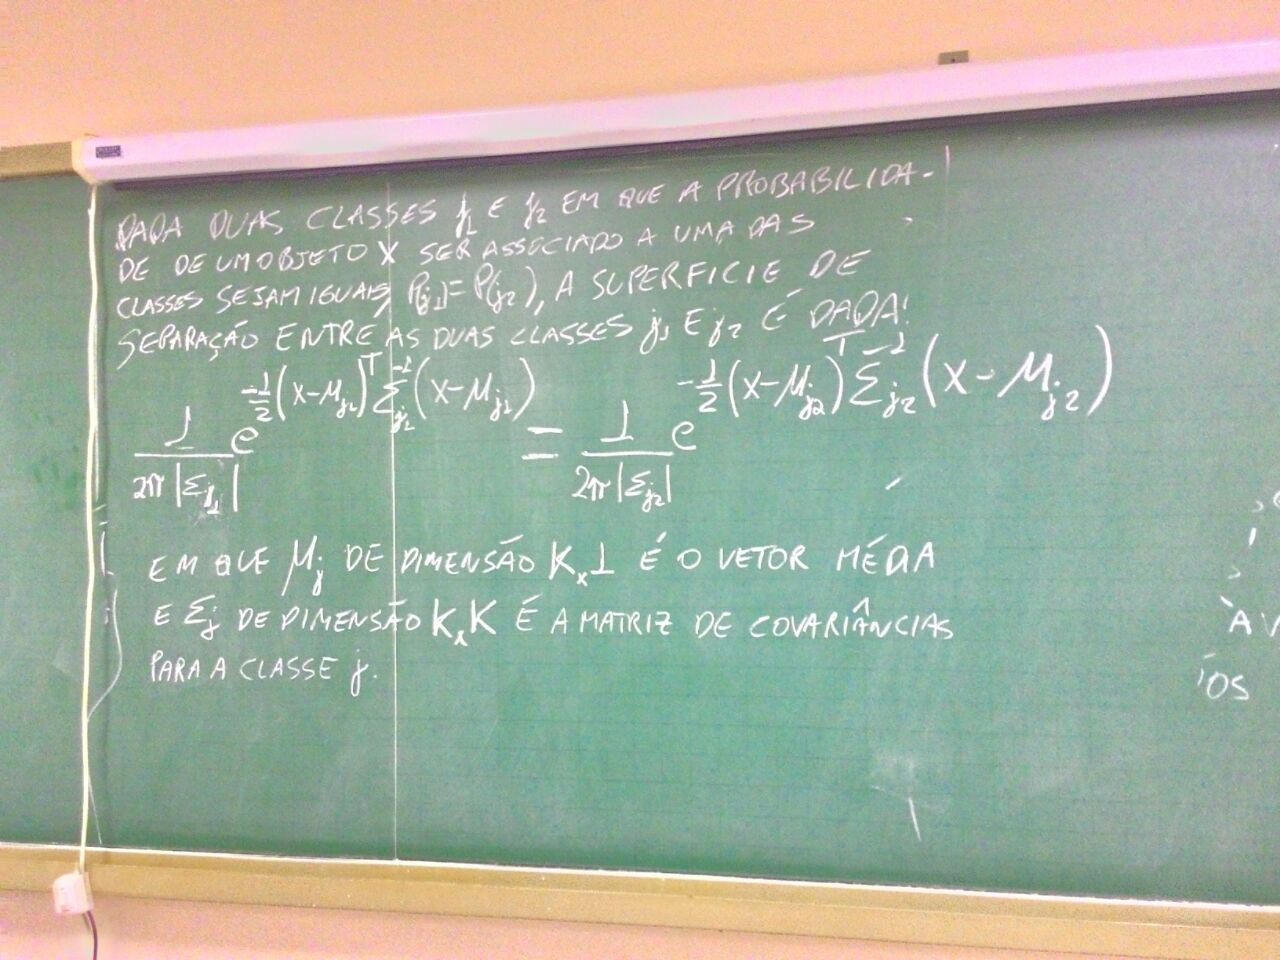 DADA DUAS CLASSES j1 E j2 EM QUE A PROBABILIDA-
DE DE UM OBJETO X SER ASSOCIADO A UMA DAS
CLASSES SEJAM IGUAIS, P(j1) = P(j2), A SUPERFICIE DE
SEPARAÇÃO ENTRE AS DUAS CLASSES j1 E j2 É DADA:
1/(2π|Σj1|) e^(-1/2 (X-μj1)^T Σj1^-1 (X-μj1)) = 1/(2π|Σj2|) e^(-1/2 (X-μj2)^T Σj2^-1 (X-μj2))
EM QUE μj DE DIMENSÃO Kx1 É O VETOR MÉDIA
E Σj DE DIMENSÃO KxK É A MATRIZ DE COVARIÂNCIAS
PARA A CLASSE j.